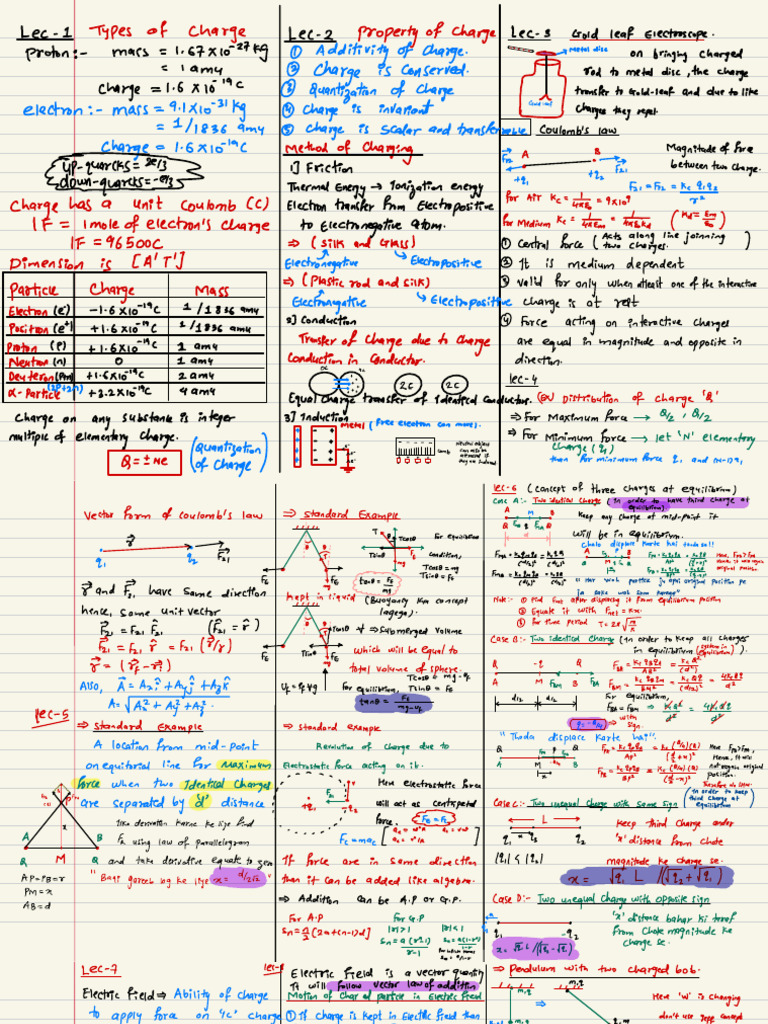 Lec-1 Types of Charge
proton:- mass = 1.67×10⁻²⁷ kg
= 1 amu
charge = 1.6×10⁻¹⁹C
electron:- mass = 9.1×10⁻³¹ kg
= 1/1836 amu
Charge = 1.6×10⁻¹⁹C
up-quarcks = 2e/3
down-quarcks = -e/3
Charge has a unit Coulomb (C)
1F = 1 mole of electron's charge
1F = 96500C
Dimension is [A'T']
Particle Charge Mass
Electron (e⁻) -1.6×10⁻¹⁹C 1/1836 amu
Positron (e⁺) +1.6×10⁻¹⁹C 1/1836 amu
Proton (P) +1.6×10⁻¹⁹C 1 amu
Neutron (n) 0 1 amu
Deuteron (Pm) +1.6×10⁻¹⁹C 2 amu
α-Particle (2P+2n) +3.2×10⁻¹⁹C 4 amu
Charge on any substance is integer
multiple of elementary charge.
Q = ±ne
(Quantization of Charge)
Lec-2 Property of Charge
① Additivity of Charge.
② Charge is Conserved.
③ Quantization of Charge
④ Charge is invariant
⑤ Charge is Scalar and transferable
Method of Charging
1] Friction
Thermal Energy → Ionization energy
Electron transfer from Electropositive
to Electronegative atom.
⇒ (Silk and Glass)
Electronegative Electropositive
⇒ (Plastic rod and Silk)
Electronegative Electropositive
2] Conduction
Transfer of Charge due to Charge
Conduction in Conductor.
2C 2C
Equal Charge transfer of Identical Conductor.
3] Induction
metal (Free electron can move)
Lec-3 Gold leaf Electroscope.
Metal disc
Gold leaf
on bringing charged
rod to metal disc, the charge
transfer to Gold-leaf and due to like
charges they repel.
Coulomb's law
A B
F₁₂ F₂₁
+q₁ +q₂
Magnitude of Force
between two charge.
F₂₁ = F₁₂ = Kc q₁q₂/r²
For Air Kc = 1/4πε₀ = 9×10⁹
For Medium Kc = 1/4πεm = 1/4πε₀εd (Kd = εm/ε₀)
① Central force (Acts along line joinning two charges.)
② It is medium dependent
③ Valid for only when atleast one of the interactive
charge is at rest
④ Force acting on interactive charges
are equal in magnitude and opposite in
direction.
Lec-4
Distribution of charge 'Q'
⇒ For Maximum Force → Q/2, Q/2
⇒ For Minimum Force → let 'N' elementary
charge (q₁)
then for minimum force q₁ and (N-1)q₁
Vector form of Coulomb's law
q₁ q₂ F₂₁
r⃗ and F⃗₂₁ have same direction
hence, same unit vector
F⃗₂₁ = F₂₁ F̂₂₁ (F̂₂₁ = r̂)
F⃗₂₁ = F₂₁ r̂ = F₂₁ (r⃗/r)
r⃗ = (r⃗f - r⃗i)
Also, A⃗ = Axî + Ayĵ + Azk̂
A = √Ax² + Ay² + Az²
Lec-5
⇒ Standard Example
A location from mid-point
on equitorial line for Maximum
Force when two Identical Charged
are separated by 'd' distance
A B
Q M Q
AP=PB=r
PM=x
AB=d
F₂ using law of parallelogram
and take derivative equate to zero
x = d/2√2
⇒ Standard Example
For equilibrium
condition,
Tcosθ = mg
Tsinθ = Fe
tanθ = Fe/mg
kept in liquid (Buoyancy Ka concept
lagega)
V ⇒ Submerged Volume
which will be equal to
total volume of sphere.
For equilibrium,
Tsinθ = Fe
tanθ = Fe/mg-Uf
⇒ Standard example
Revolution of Charge due to
Electrostatic force acting on it.
Here electrostatic force
will act as centripetal
force.
Fc = mac
If force are in same direction
then it can be added like algebra.
⇒ Addition can be A.P or G.P.
For A.P
Sn = n/2 [2a+(n-1)d]
For G.P
|r|>1 |r|<1
Lec-6 (Concept of three charges at equilibrium)
Case A:- Two identical Charge (In order to have third charge at
equilibrium)
Keep any charge at mid-point it
will be in equilibrium.
Note:- ① Find Fnet after displacing it from equilibrium position
② Equate it with Fnet = Kx.
③ For time period T = 2π√m/K
Case B:- Two identical Charge (In order to keep all charges
in equilibrium)
For equilibrium,
"Thoda displace Karte hai".
Case C:- Two unequal Charge with same sign
L
q₁ q₂
|q₁| < |q₂|
Keep third Charge under
'x' distance from chote
magnitude ke charge se.
x = √q₁ L /(√q₂ + √q₁)
Case D:- Two unequal Charge with opposite sign
q₁ -q₂
'x' distance bahar ki taraf
from chote magnitude ke
charge se.
x = √q₁ L /(√q₂ - √q₁)
Lec-7
Electric Field ⇒ Ability of charge
to apply force on '1C' charge
Lec-8
Electric field is a vector quantity
It will follow vector law of addition
Motion of Charged particle in Electric field
① If charge is kept in Electric field than
⇒ Pendulum with two charged bob.
m,q m,q
Here 'W' is changing
don't use Jeff concept